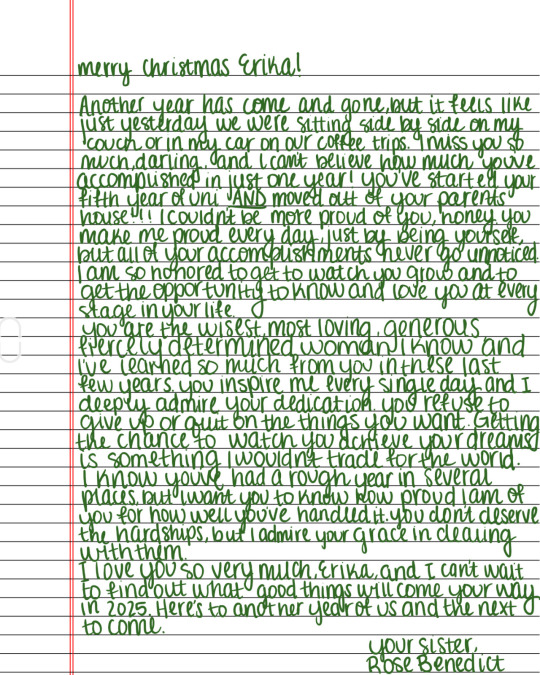 merry christmas Erika!
Another year has come and gone, but it feels like
just yesterday we were sitting side by side on my
couch or in my car on our coffee trips. I miss you so
much, darling, and I can't believe how much you've
accomplished in just one year! you've started your
fifth year of uni AND moved out of your parents
house!!! I couldn't be more proud of you, honey. you
make me proud every day just by being yourself,
but all of your accomplishments never go unnoticed.
I am so honored to get to watch you grow and to
get the opportunity to know and love you at every
stage in your life.
you are the wisest, most loving, generous
fiercely determined woman I know and
I've learned so much from you in these last
few years. you inspire me every single day and I
deeply admire your dedication. you refuse to
give up or quit on the things you want. Getting
the chance to watch you achieve your dreams
is something I wouldn't trade for the world.
I know you've had a rough year in several
places, but I want you to know how proud I am of
you for how well you've handled it. you don't deserve
the hardships, but I admire your grace in dealing
with them.
I love you so very much, Erika, and I can't wait
to find out what good things will come your way
in 2025. Here's to another year of us and the next
to come.
your sister,
Rose Benedict